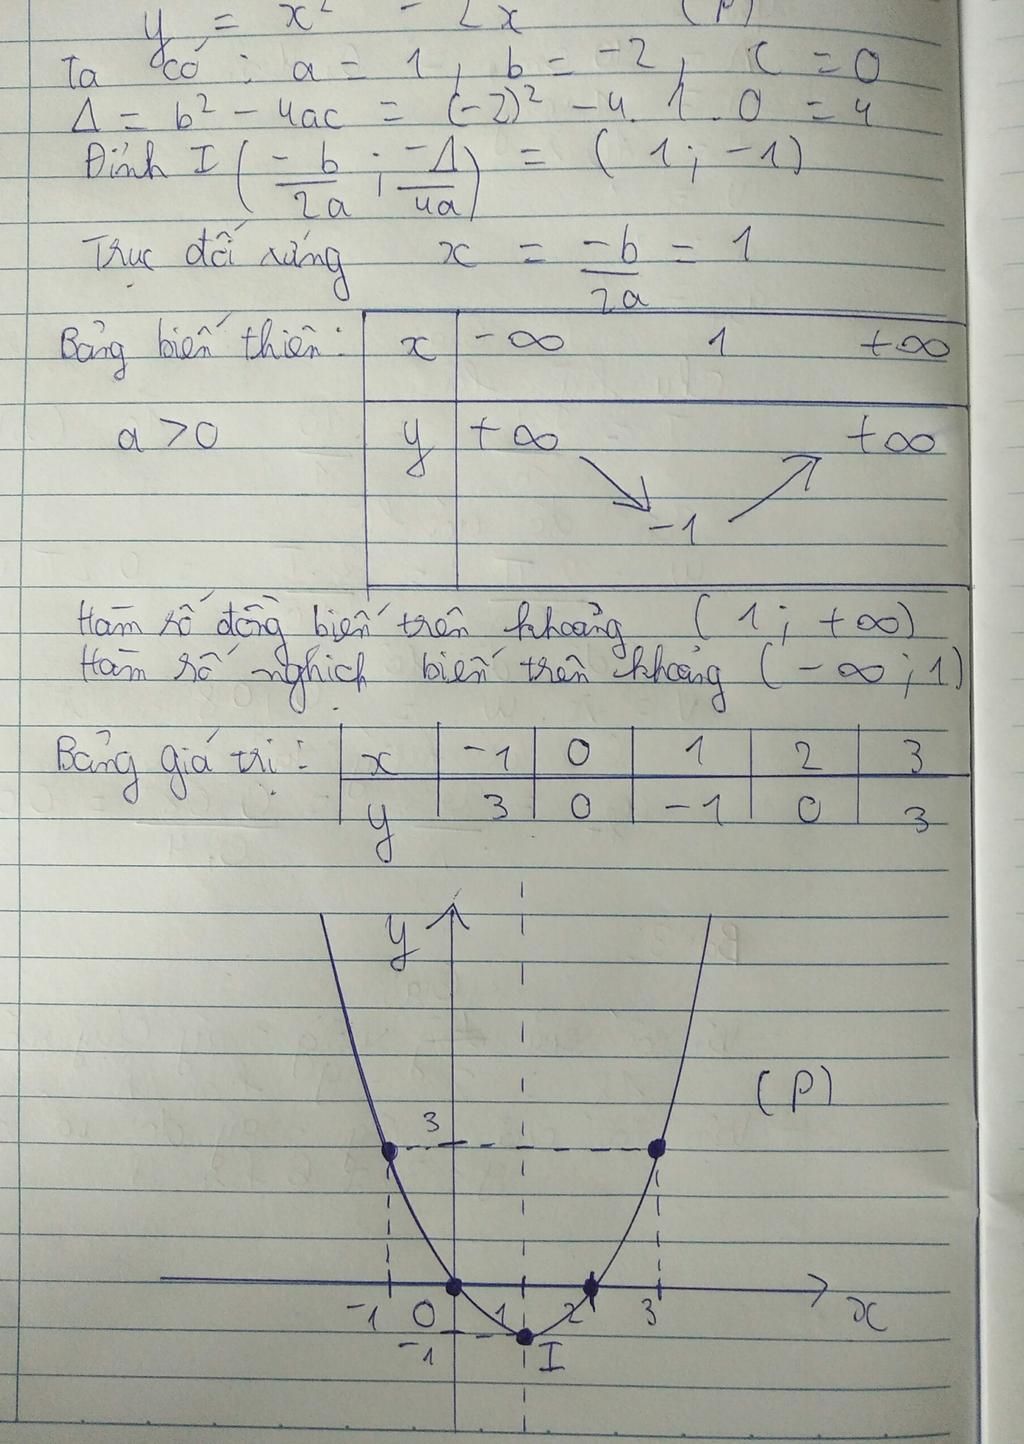 y = x² - 2x (P)
Ta có : a = 1 , b = -2 , c = 0
Δ = b² - 4ac = (-2)² - 4. 1 . 0 = 4
Đỉnh I ( -b/2a ; -Δ/4a ) = ( 1 ; -1 )
Trục đối xứng x = -b/2a = 1
Bảng biến thiên : x -∞ 1 +∞
a > 0 y +∞ +∞
-1
Hàm số đồng biến trên khoảng ( 1 ; +∞)
Hàm số nghịch biến trên khoảng ( -∞ ; 1)
Bảng giá trị : x -1 0 1 2 3
y 3 0 -1 0 3
y
(P)
3
-1 0 1 2 3 x
-1 I